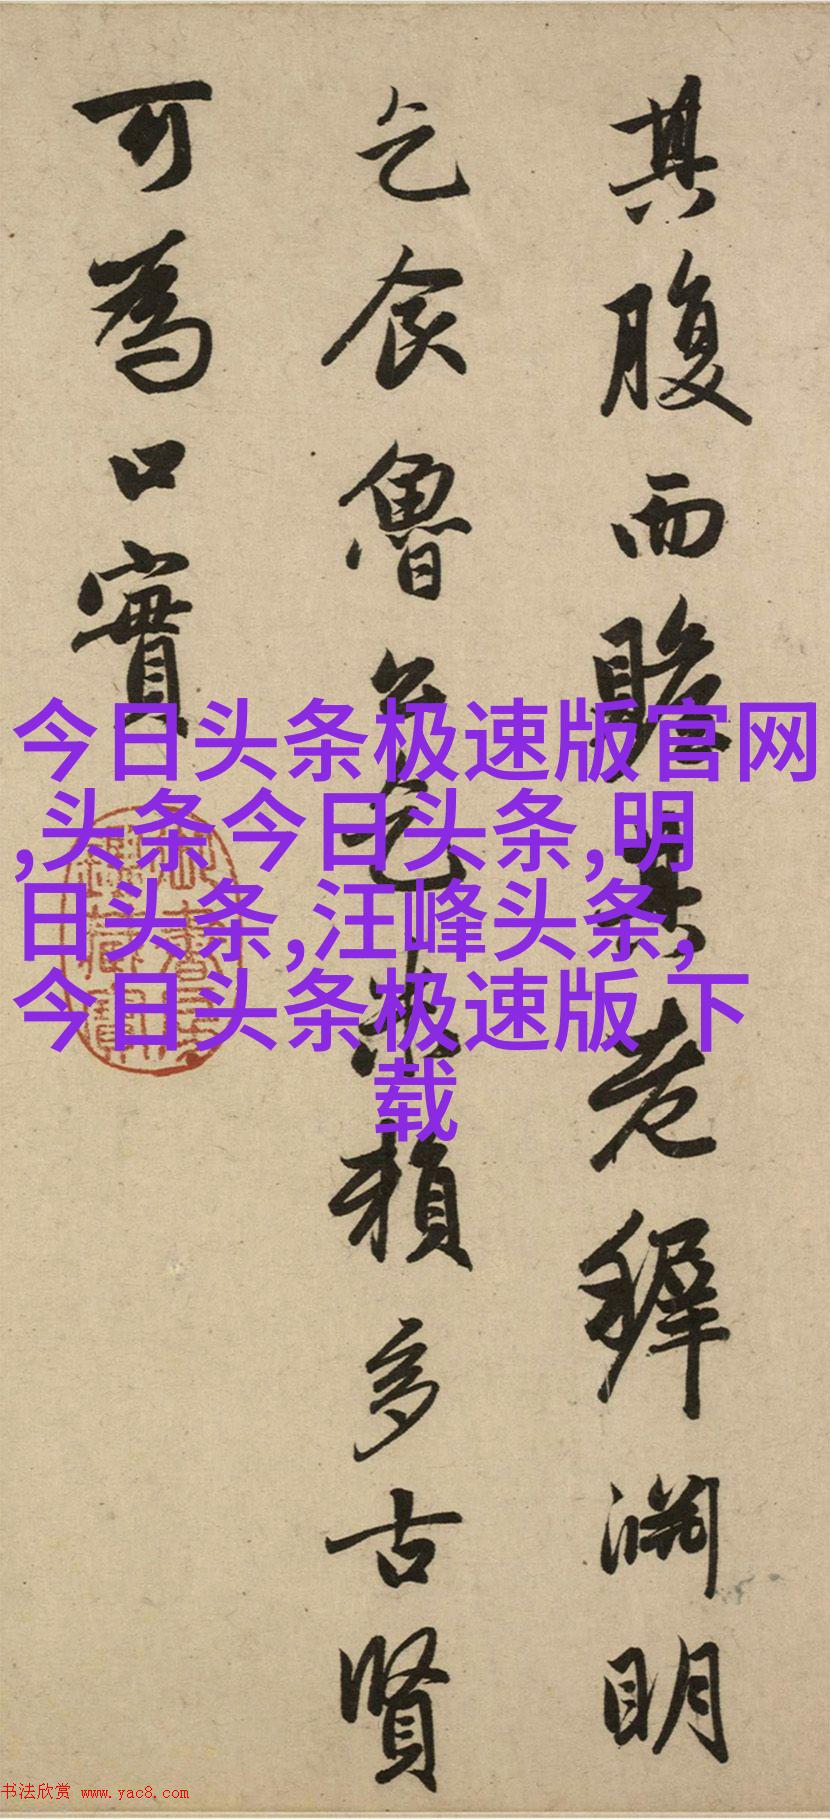 其腹而贍其老穉淵明
乞食魯公乞米賴多古賢
可為口實
今日头条极速版官网
,头条今日头条,明
日头条,汪峰头条,
今日头条极速版 下
载
书法欣赏 www.yac8.com